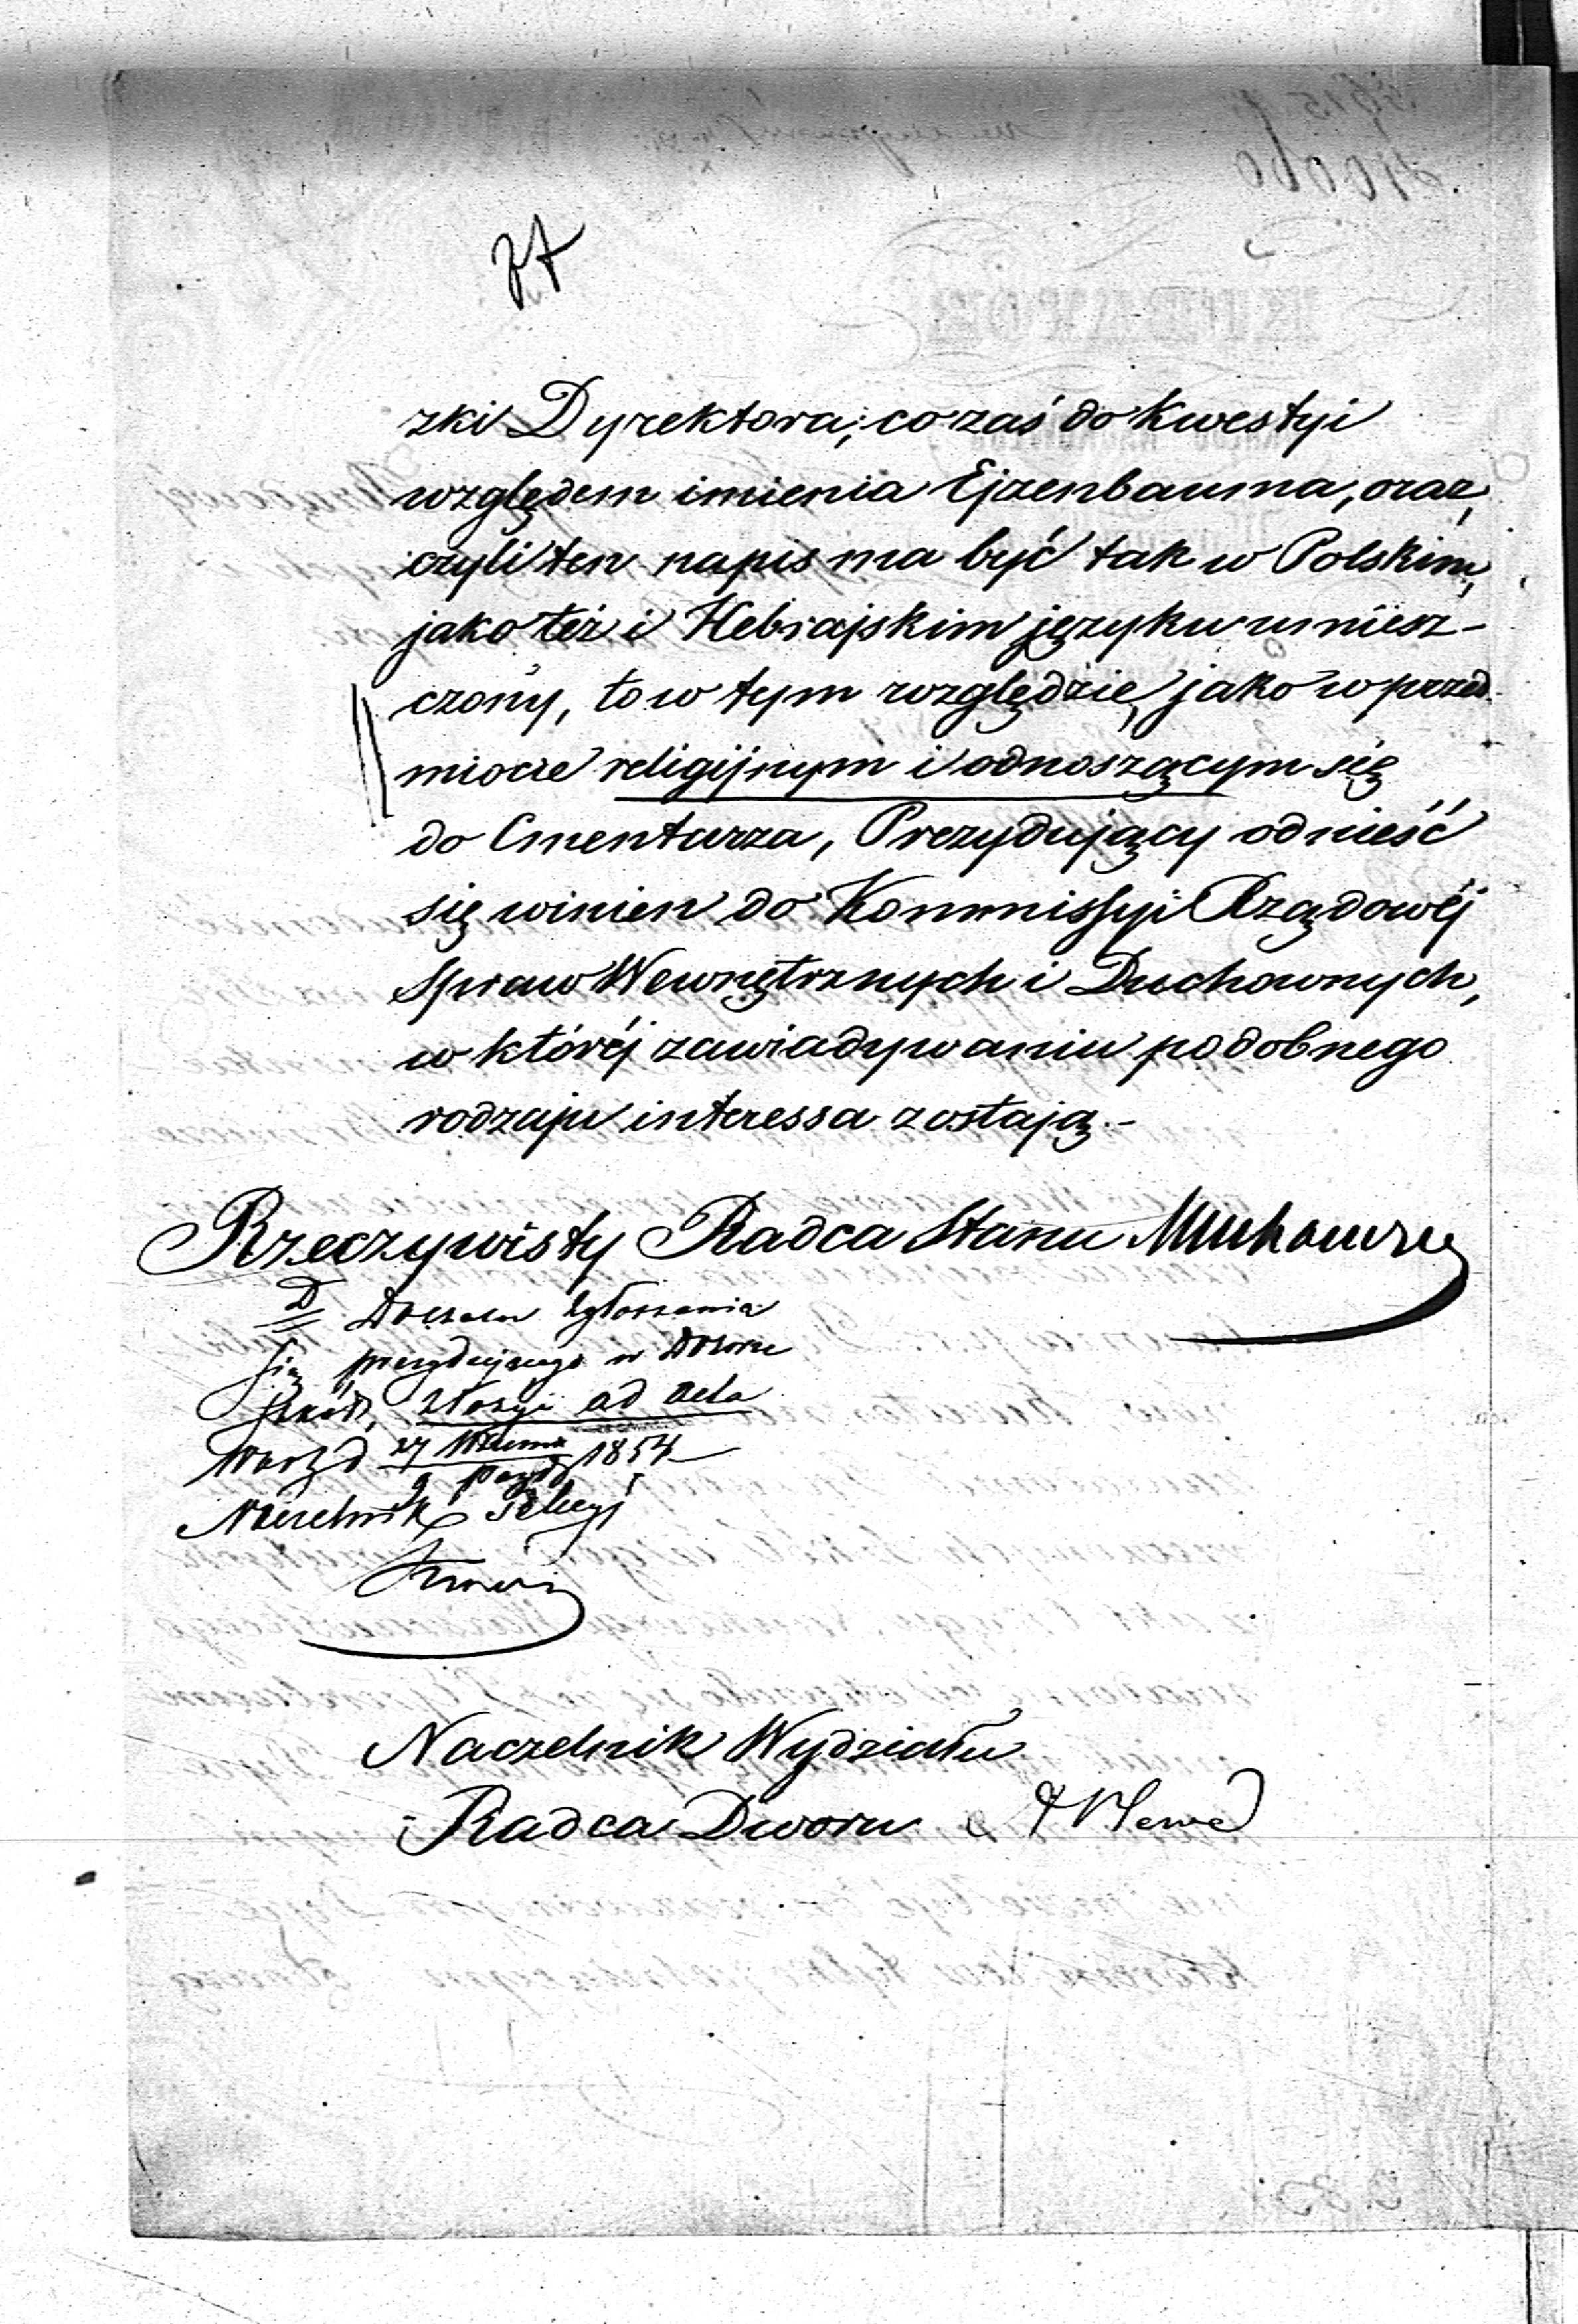 zki Dyrektora; co zaś do Kwestyi
względem imienia Ejzenbauma, oraz,
czyli ten napis ma być tak w Polskim,
jako też i Hebrajskim języku umiesz-
czony, to w tym względzie, jako w przed-
miocie religijnym i odnoszącym się
do Cmentarza, Prezydujący odnieść
się winien do Kommissyi Rządowéj
Spraw Wewnętrznych i Duchownych,
w któréj zawiadywaniu podobnego
rodzaju interessa zostają.-
Rzeczywisty Radca Stanu Muchanow
zgłoszenia
się prezydującego w Dozorze
złożyć ad acta
27 Września 1854
9 Paźdz
Naczelnik Sekcyi
Naczelnik Wydziału
Radca Dworu